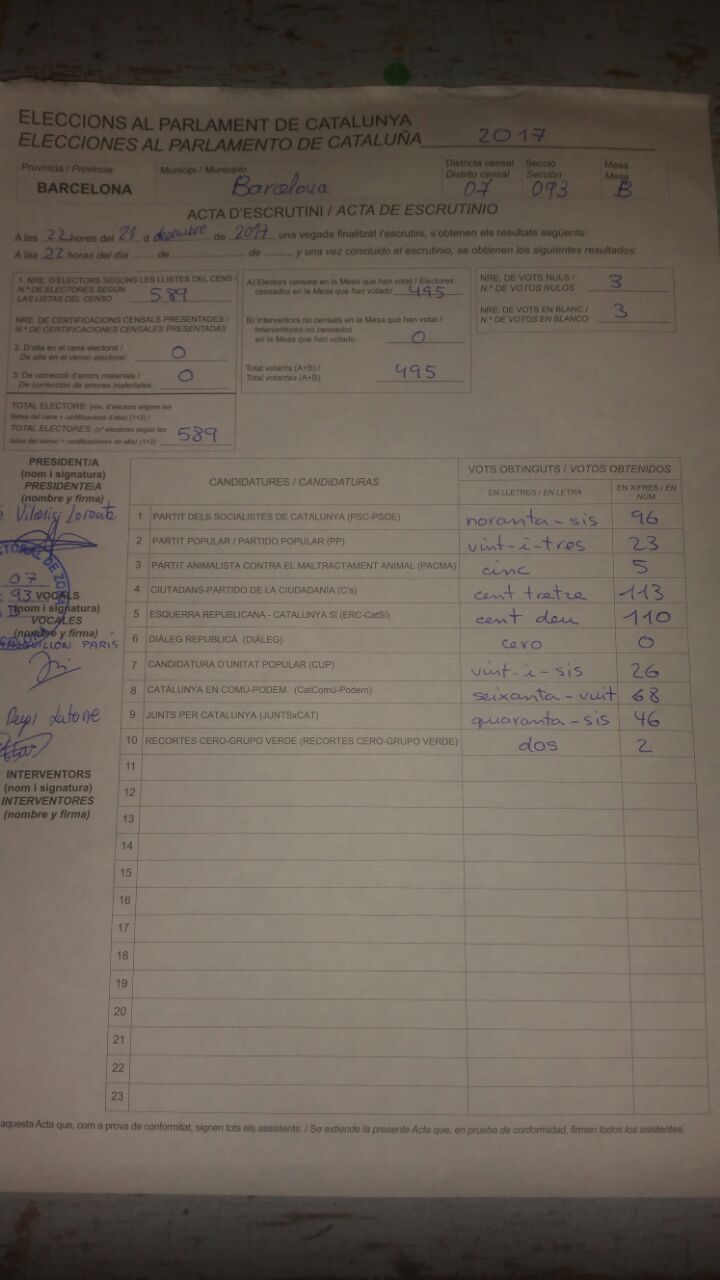 ELECCIONS AL PARLAMENT DE CATALUNYA
ELECCIONES AL PARLAMENTO DE CATALUÑA 2017
Província / Provincia
BARCELONA
Municipi / Municipio
Barcelona
Districte censal
Distrito censal
07
Secció
Sección
093
Mesa
Mesa
B
ACTA D'ESCRUTINI / ACTA DE ESCRUTINIO
A les 22 hores del 21 d desembre de 2017, una vegada finalitzat l'escrutini, s'obtenen els resultats següents:
A las 22 horas del día ...... de ........................ de .......... y una vez concluido el escrutinio, se obtienen los siguientes resultados:
1. NRE. D'ELECTORS SEGONS LES LLISTES DEL CENS /
N.º DE ELECTORES SEGÚN
LAS LISTAS DEL CENSO 589
NRE. DE CERTIFICACIONS CENSALS PRESENTADES /
N.º DE CERTIFICACIONES CENSALES PRESENTADAS
2. D'alta en el cens electoral /
De alta en el censo electoral: 0
3. De correcció d'errors materials /
De corrección de errores materiales: 0
TOTAL ELECTORS: (nre. d'electors segons les
llistes del cens + certificacions d'alta) (1+2) /
TOTAL ELECTORES: (nº electores según las
listas del censo + certificaciones de alta) (1+2) 589
A) Electors censats en la Mesa que han votat / Electores
censados en la Mesa que han votado 495
B) Interventors no censats en la Mesa que han votat /
Interventores no censados
en la Mesa que han votado 0
Total votants (A+B) /
Total votantes (A+B) 495
NRE. DE VOTS NULS /
N.º DE VOTOS NULOS 3
NRE. DE VOTS EN BLANC /
N.º DE VOTOS EN BLANCO 3
PRESIDENT/A
(nom i signatura)
PRESIDENTE/A
(nombre y firma)
Lorente
07
93
VOCALS
(nom i signatura)
VOCALES
(nombre y firma)
PARÍS
INTERVENTORS
(nom i signatura)
INTERVENTORES
(nombre y firma)
CANDIDATURES / CANDIDATURAS VOTS OBTINGUTS / VOTOS OBTENIDOS
EN LLETRES / EN LETRA EN XIFRES / EN NÚM.
1 PARTIT DELS SOCIALISTES DE CATALUNYA (PSC-PSOE) noranta-sis 96
2 PARTIT POPULAR / PARTIDO POPULAR (PP) vint-i-tres 23
3 PARTIT ANIMALISTA CONTRA EL MALTRACTAMENT ANIMAL (PACMA) cinc 5
4 CIUTADANS-PARTIDO DE LA CIUDADANÍA (C's) cent tretze 113
5 ESQUERRA REPUBLICANA - CATALUNYA SÍ (ERC-CatSí) cent deu 110
6 DIÀLEG REPUBLICÀ (DIÀLEG) cero 0
7 CANDIDATURA D'UNITAT POPULAR (CUP) vint-i-sis 26
8 CATALUNYA EN COMÚ-PODEM (CatComú-Podem) seixanta-vuit 68
9 JUNTS PER CATALUNYA (JUNTSxCAT) quaranta-sis 46
10 RECORTES CERO-GRUPO VERDE (RECORTES CERO-GRUPO VERDE) dos 2
11
12
13
14
15
16
17
18
19
20
21
22
23
aquesta Acta que, com a prova de conformitat, signen tots els assistents. / Se extiende la presente Acta que, en prueba de conformidad, firman todos los asistentes.